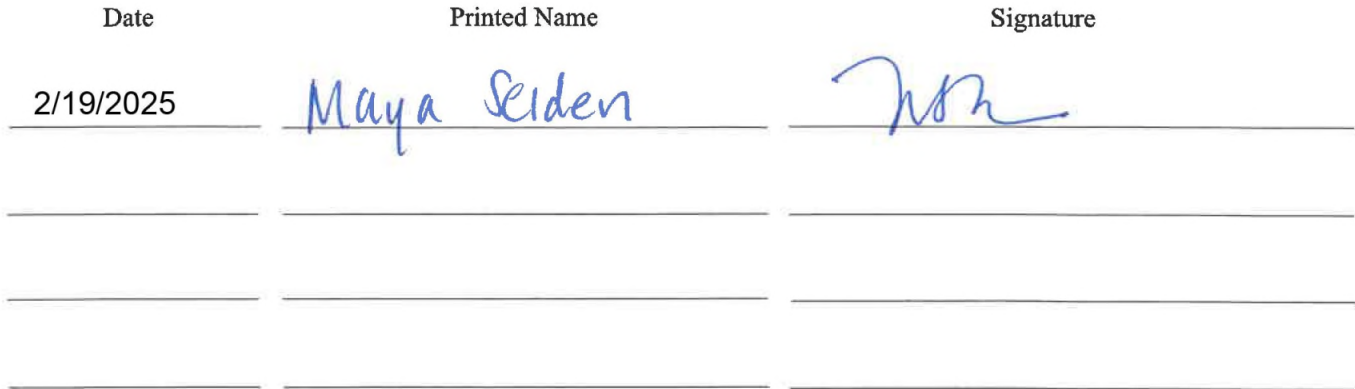 Date Printed Name Signature
2/19/2025 Maya Seiden